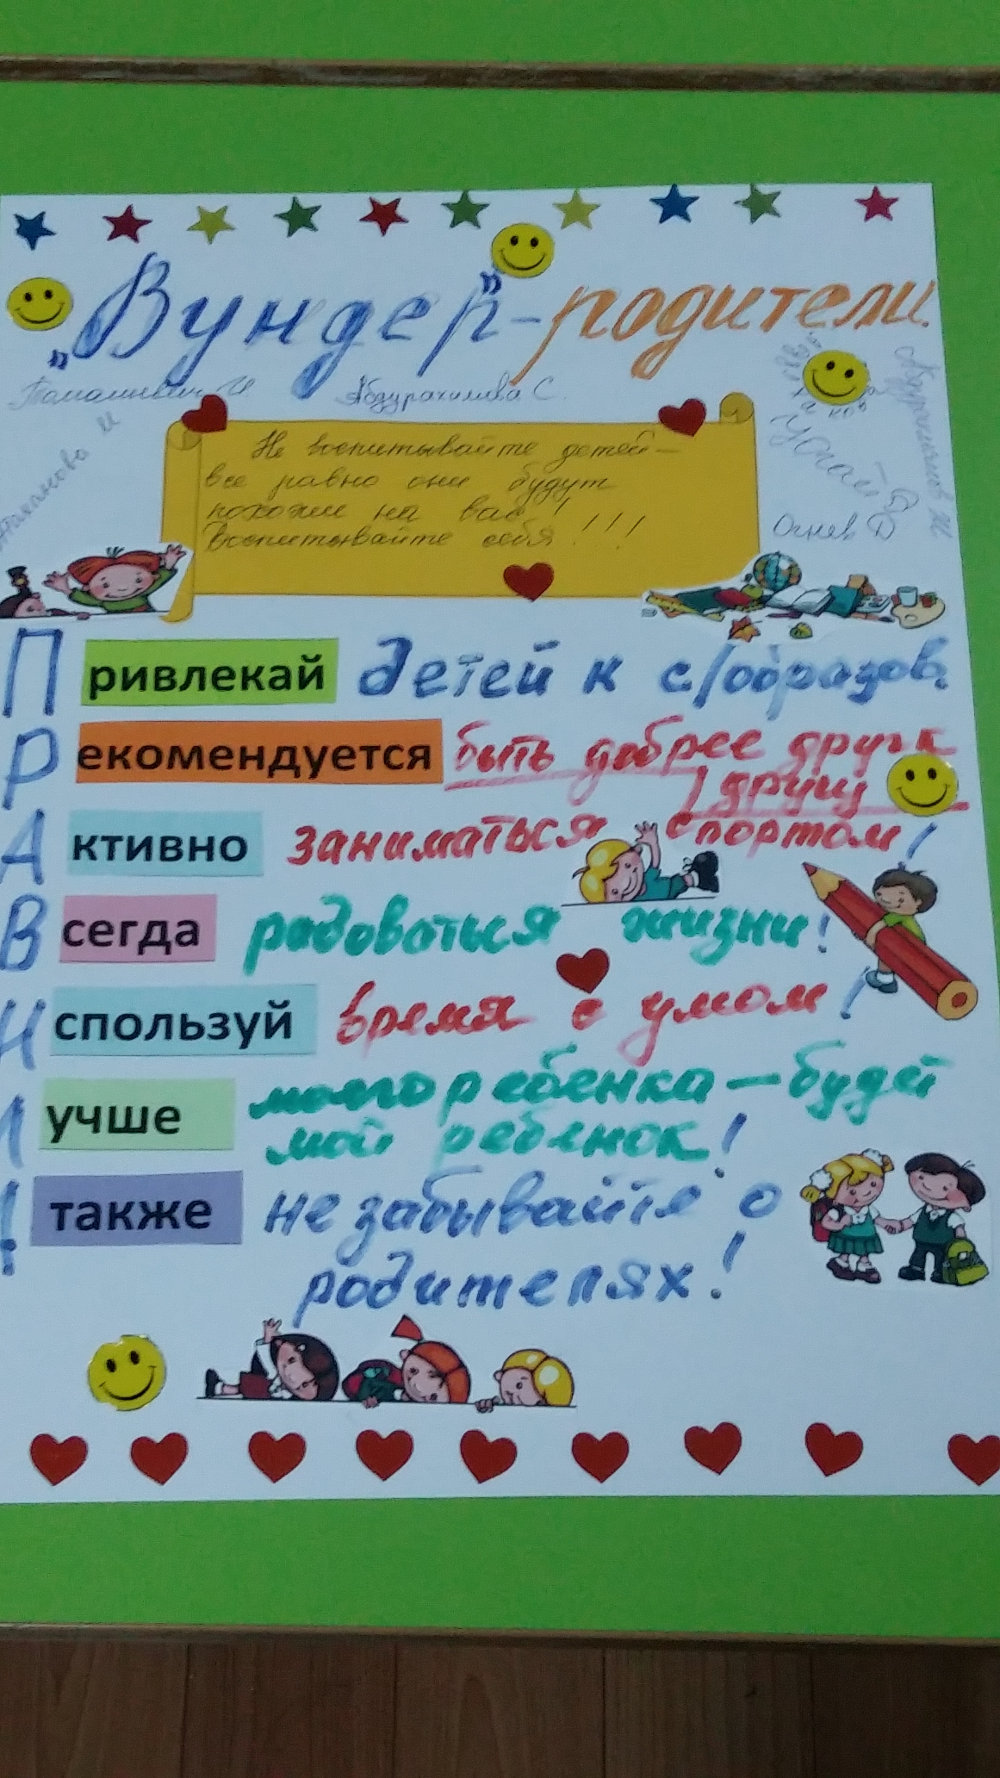 „Вундер"-родители
Абдурахимова С.
Огнев Д
Не воспитывайте детей —
все равно они будут
похожи на вас!
Воспитывайте себя !!!
Привлекай детей к с/образов.
Рекомендуется быть добрее друг к
другу
Активно заниматься спортом!
Всегда радоваться жизни!
Используй время с умом!
Лучше моего ребенка — будет
мой ребенок!
! также не забывайте о
родителях!